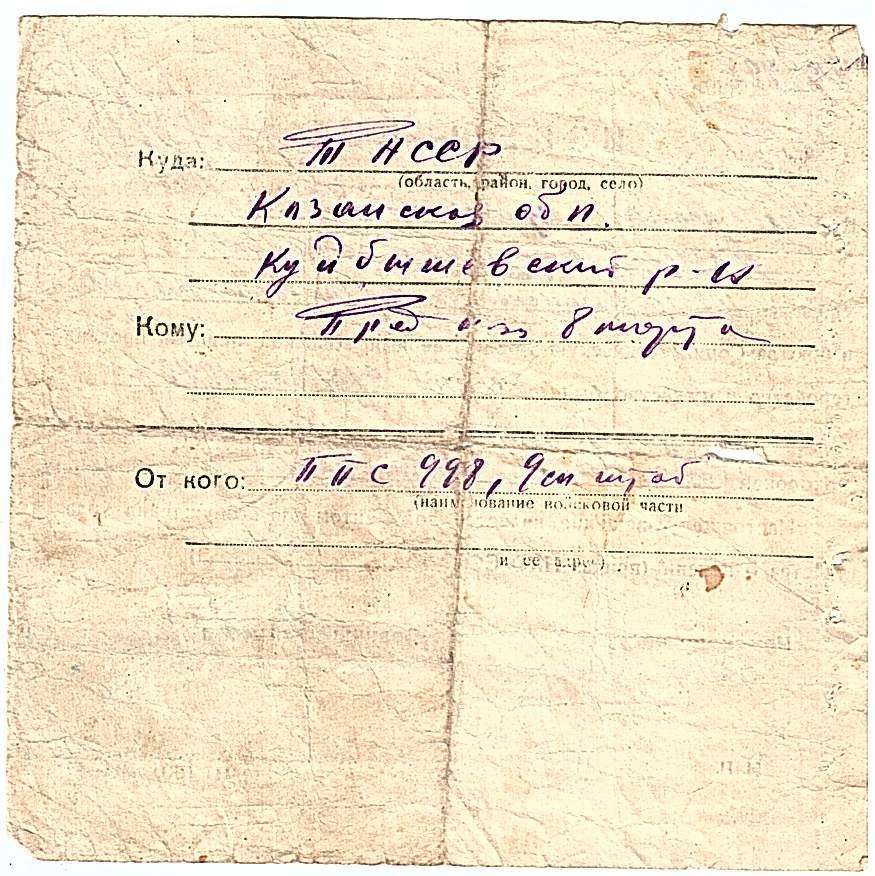 Куда: ТАССР
(область, район, город, село)
Казанская обл.
Куйбышевский р-н
Кому: Пред к-за 8 марта
От кого: ППС 998, 9сп штаб
(наименование войсковой части
и ее адрес)